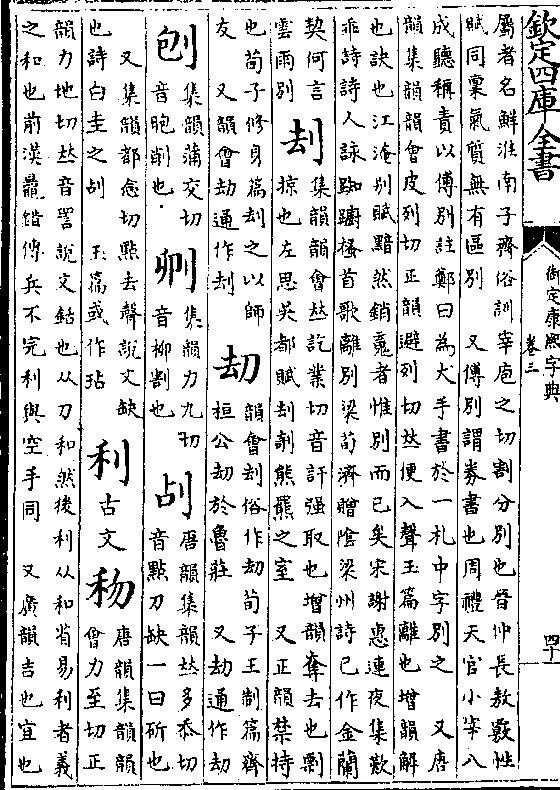 欽定四庫全書
御定康熙字典
卷三
四十
屬者名鮮淮南子齊俗訓宰庖之切割分別也晉仲長敖覈性
賦同稟氣質無有區別　又傅別謂劵書也周禮天官小宰八
成聽稱責以傅別註鄭曰為大手書於一札中字別之　又唐
韻集韻韻會皮列切正韻避列切𠀤便入聲玉篇離也增韻解
也訣也江淹別賦黯然銷䰟者惟別而已矣宋謝惠連夜集歎
乖詩詩人詠踟躕搔首歌離別梁荀濟贈陰梁州詩已作金蘭
契何言
雲雨別
刦
集韻韻會𠀤訖業切音訐强取也增韻奪去也剽
掠也左思吳都賦刦剞熊羆之室　又正韻禁持
也荀子修身篇刦之以師
友　又韻會刦通作刦
刧
韻會刦俗作刧荀子王制篇齊
桓公刧於魯莊　又刧通作劫
刨
集韻蒲交切
音鉋削也
集韻力九切
音柳割也
㓠
唐韻集韻𠀤多忝切
音點刀缺一曰斫也
又集韻都念切點去聲說文缺
也詩白圭之㓠　玉篇或作玷
利
古文
𥝢
唐韻集韻韻
會力至切正
韻力地切𠀤音詈說文銛也从刀和然後利从和省易利者義
之和也前漢鼂錯傳兵不完利與空手同　又廣韻吉也宜也